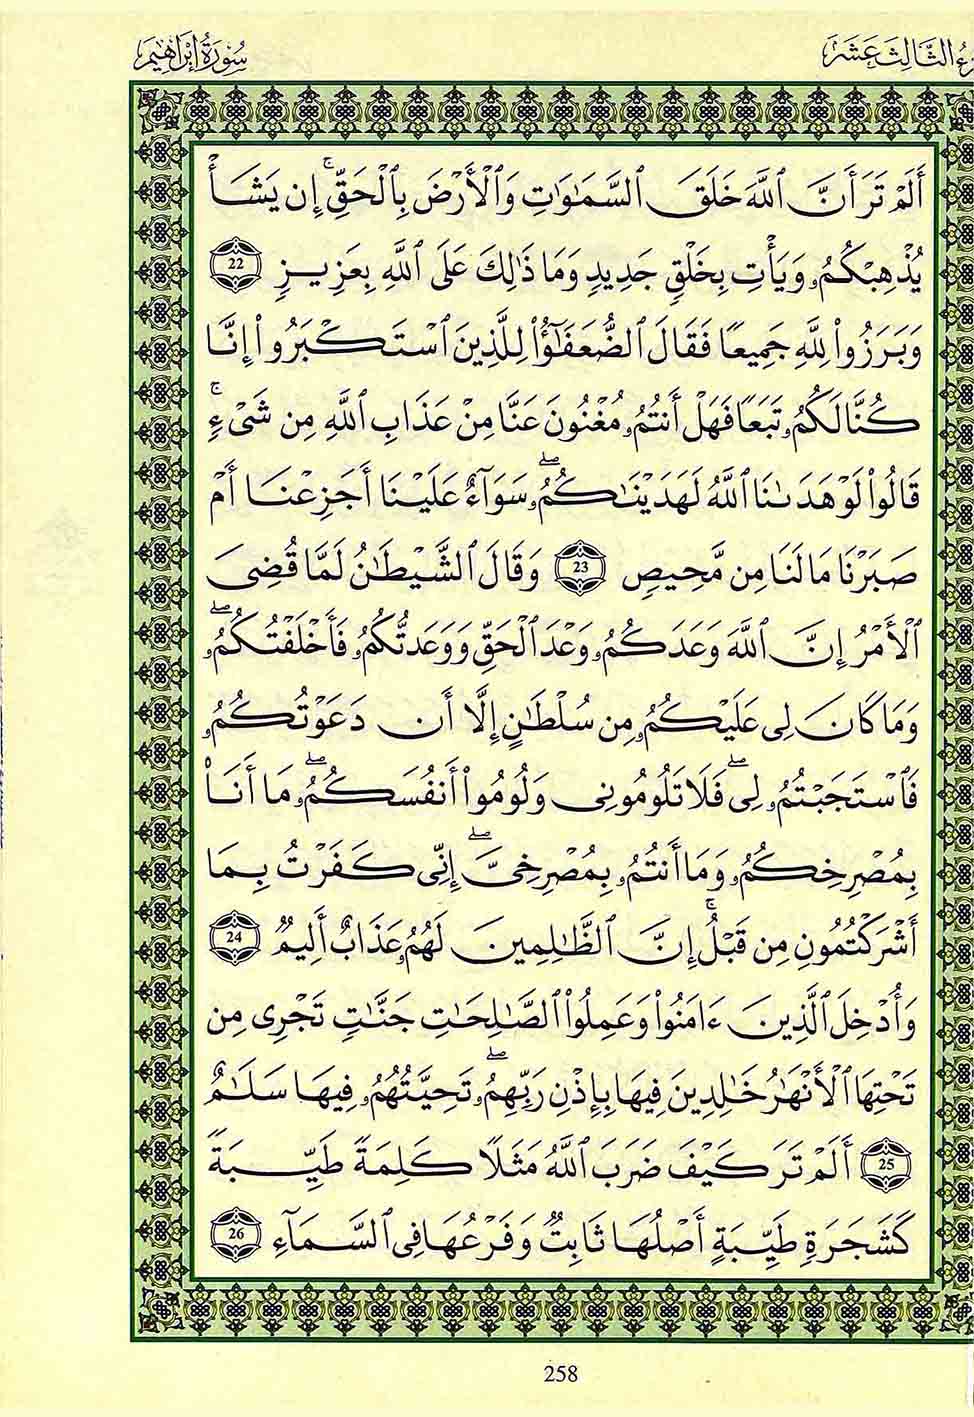 سُورَةُ إِبْرَاهِيمَ
الثَّالِثَ عَشَرَ
أَلَمْ تَرَ أَنَّ ٱللَّهَ خَلَقَ ٱلسَّمَٰوَٰتِ وَٱلْأَرْضَ بِٱلْحَقِّۚ إِن يَشَأْ
يُذْهِبْكُمُۥ وَيَأْتِ بِخَلْقٍ جَدِيدٍ وَمَا ذَٰلِكَ عَلَى ٱللَّهِ بِعَزِيزٍ 22
وَبَرَزُوا۟ لِلَّهِ جَمِيعًا فَقَالَ ٱلضُّعَفَٰٓؤُا۟ لِلَّذِينَ ٱسْتَكْبَرُوٓا۟ إِنَّا
كُنَّا لَكُمُۥ تَبَعًا فَهَلْ أَنتُمُۥ مُغْنُونَ عَنَّا مِنْ عَذَابِ ٱللَّهِ مِن شَىْءٍۚ
قَالُوا۟ لَوْ هَدَىٰنَا ٱللَّهُ لَهَدَيْنَٰكُمُۥۖ سَوَآءٌ عَلَيْنَا أَجَزِعْنَا أَمْ
صَبَرْنَا مَا لَنَا مِن مَّحِيصٍ 23 وَقَالَ ٱلشَّيْطَٰنُ لَمَّا قُضِىَ
ٱلْأَمْرُ إِنَّ ٱللَّهَ وَعَدَكُمُۥ وَعْدَ ٱلْحَقِّ وَوَعَدتُّكُمُۥ فَأَخْلَفْتُكُمُۥۖ
وَمَا كَانَ لِى عَلَيْكُمُۥ مِن سُلْطَٰنٍ إِلَّا أَن دَعَوْتُكُمُۥ
فَٱسْتَجَبْتُمُۥ لِىۖ فَلَا تَلُومُونِى وَلُومُوا۟ أَنفُسَكُمُۥۖ مَا أَنَا۠
بِمُصْرِخِكُمُۥ وَمَا أَنتُمُۥ بِمُصْرِخِىَّۖ إِنِّى كَفَرْتُ بِمَا
أَشْرَكْتُمُونِ مِن قَبْلُۚ إِنَّ ٱلظَّٰلِمِينَ لَهُمُۥ عَذَابٌ أَلِيمٌ 24
وَأُدْخِلَ ٱلَّذِينَ ءَامَنُوا۟ وَعَمِلُوا۟ ٱلصَّٰلِحَٰتِ جَنَّٰتٍ تَجْرِى مِن
تَحْتِهَا ٱلْأَنْهَٰرُ خَٰلِدِينَ فِيهَا بِإِذْنِ رَبِّهِمُۥۖ تَحِيَّتُهُمُۥ فِيهَا سَلَٰمٌ
25 أَلَمْ تَرَ كَيْفَ ضَرَبَ ٱللَّهُ مَثَلًا كَلِمَةً طَيِّبَةً
كَشَجَرَةٍ طَيِّبَةٍ أَصْلُهَا ثَابِتٌ وَفَرْعُهَا فِى ٱلسَّمَآءِ 26
258